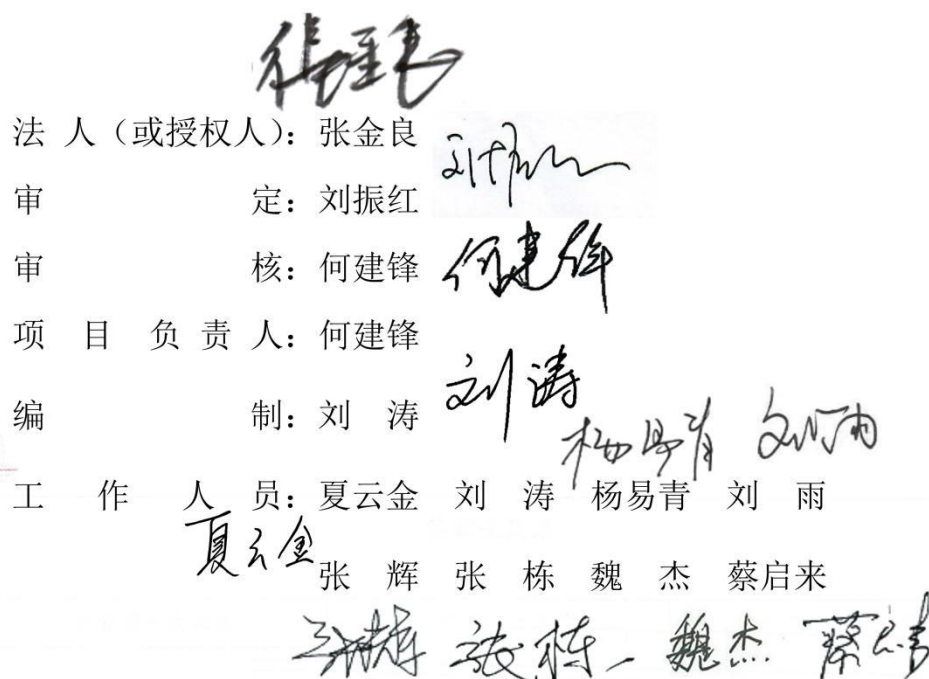 张金良
法 人（或授权人）：张金良
审 定：刘振红
审 核：何建锋 何建锋
项 目 负 责 人：何建锋
编 制：刘 涛 刘涛
杨易青 刘雨
工 作 人 员：夏云金 刘 涛 杨易青 刘 雨
夏云金
张 辉 张 栋 魏 杰 蔡启来
张辉 张栋 魏杰